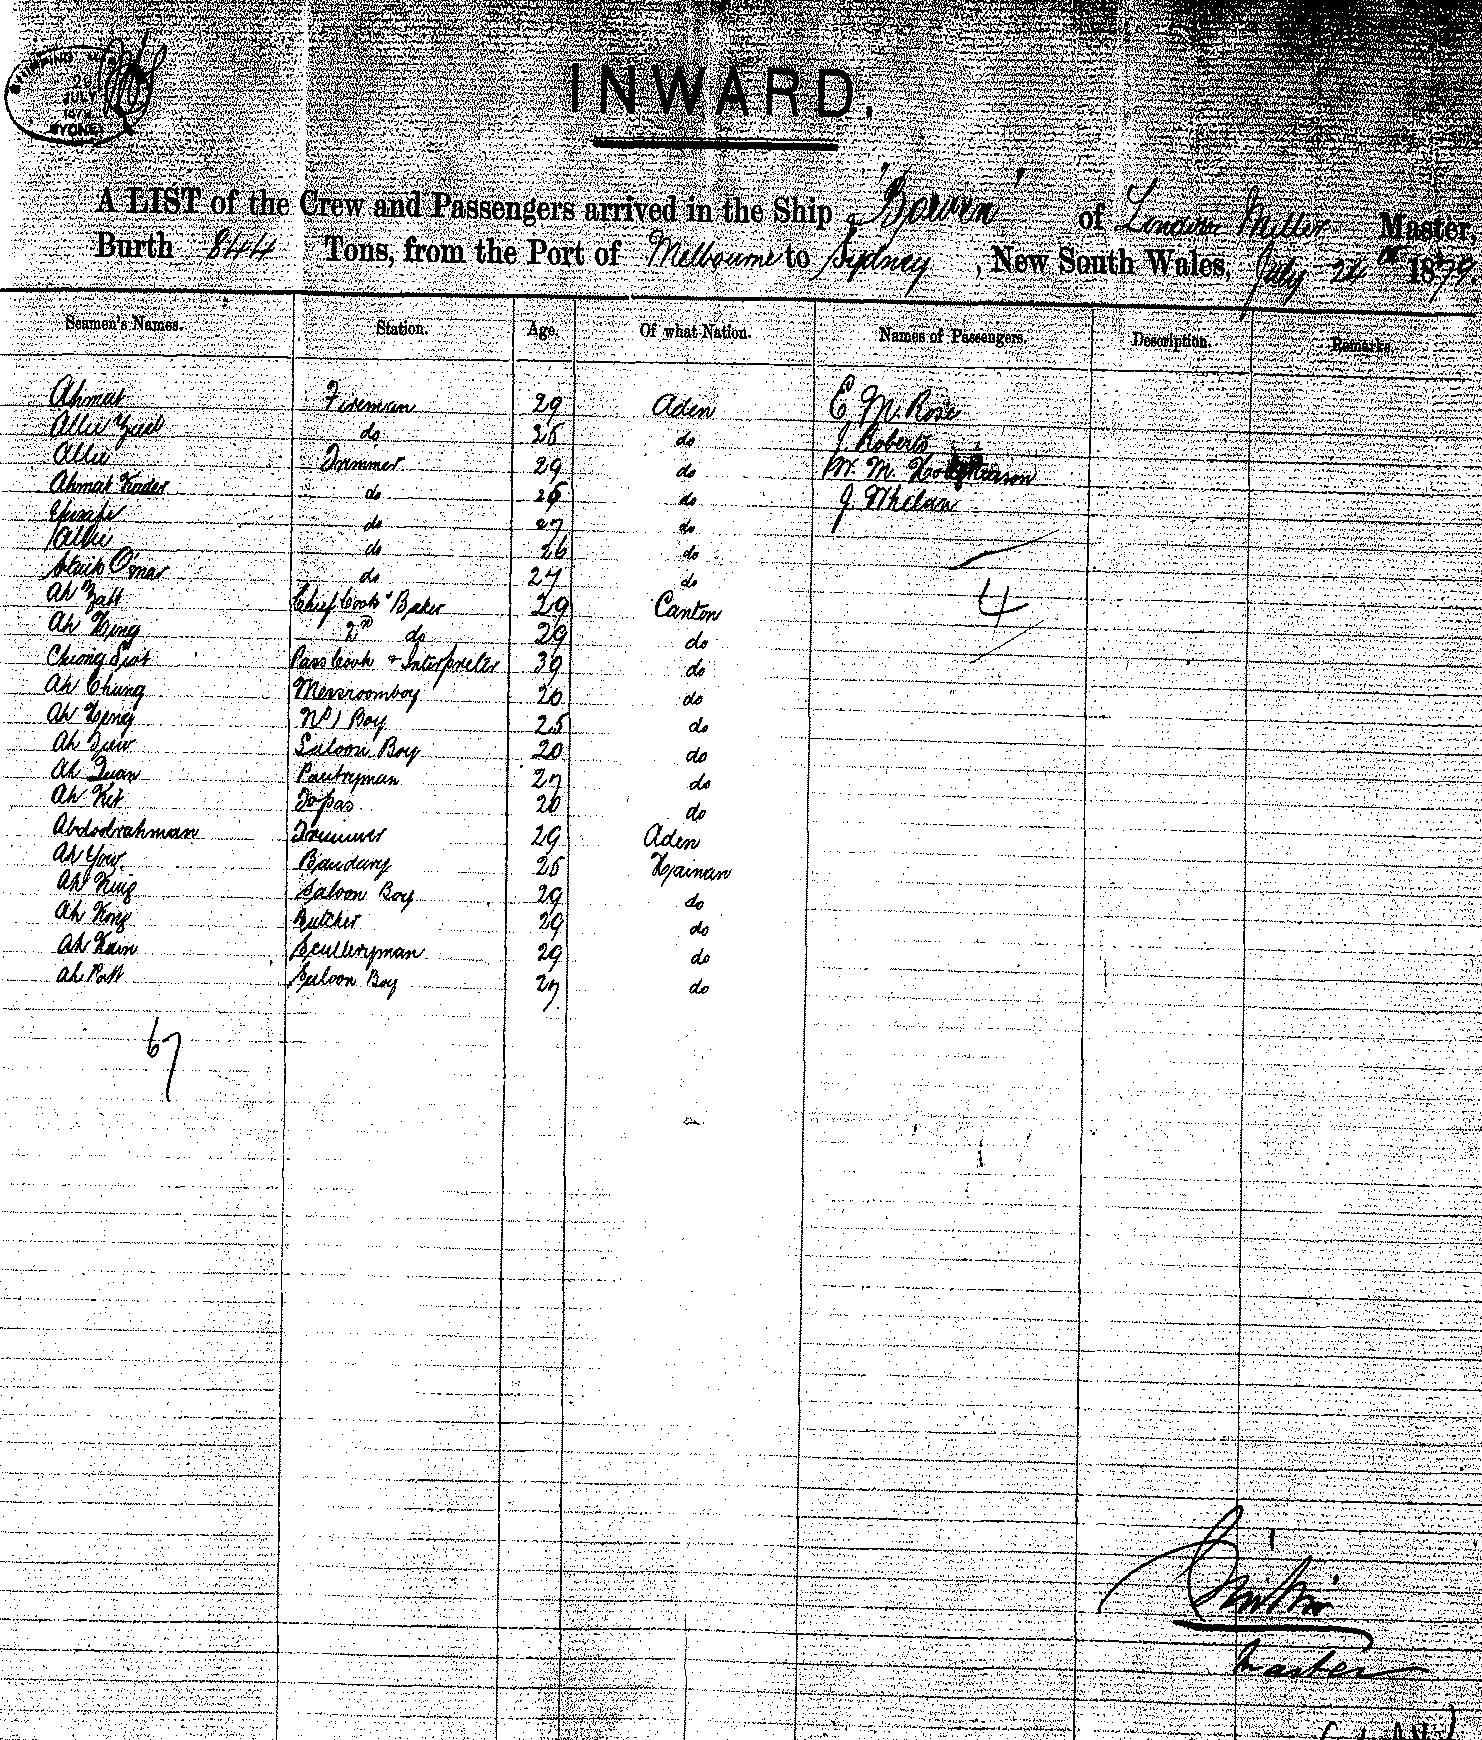 SHIPPING
JULY
SYDNEY
INWARD.
A LIST of the Crew and Passengers arrived in the Ship "Bowen" of London Miller Master,
Burth 844 Tons, from the Port of Melbourne to Sydney, New South Wales, July 24th 1879
Seamen's Names. Station. Age. Of what Nation. Names of Passengers. Description. Remarks.
Ahmat Fireman 29 Aden E M. Rose
Allie do 25 do J Roberts
Allie Trimmer 29 do W. M.
Ahmat Kader do 25 do J. Whelan
do 27 do
Allie do 26 do
Omar do 27 do
Ah Chief Cook & Baker 29 Canton 4
Ah Heng 2nd do 29 do
Cheong Pass Cook & Interpreter 39 do
Ah Chung Messroomboy 20 do
Ah Heng No 1 Boy 25 do
Ah Saloon Boy 20 do
Ah Quan Pantryman 27 do
Ah Kit Topas 20 do
Abdoolrahman Trimmer 29 Aden
Ah Yow 25 Hainan
Ah King Saloon Boy 29 do
Ah Kong Butcher 29 do
Ah Sculleryman 29 do
Ah Saloon Boy 27 do
67
Master